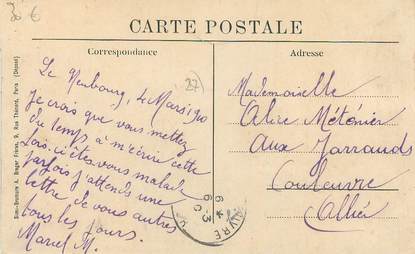 30 €
CARTE POSTALE
Correspondance
Adresse
27
Le Neubourg, 4 Mars 190
Je crois que vous mettez
du temps à m'écrire cette
fois. êtes-vous malade
parfois j'attends une
lettre de vous autres
tous les jours.
Marcel M.
Mademoiselle
Alice Méténier
Aux Jarrauds
Couleuvre
Allier
UVRE
6 3
Breger Frères, 9, Rue Thénard, Paris (Déposé)